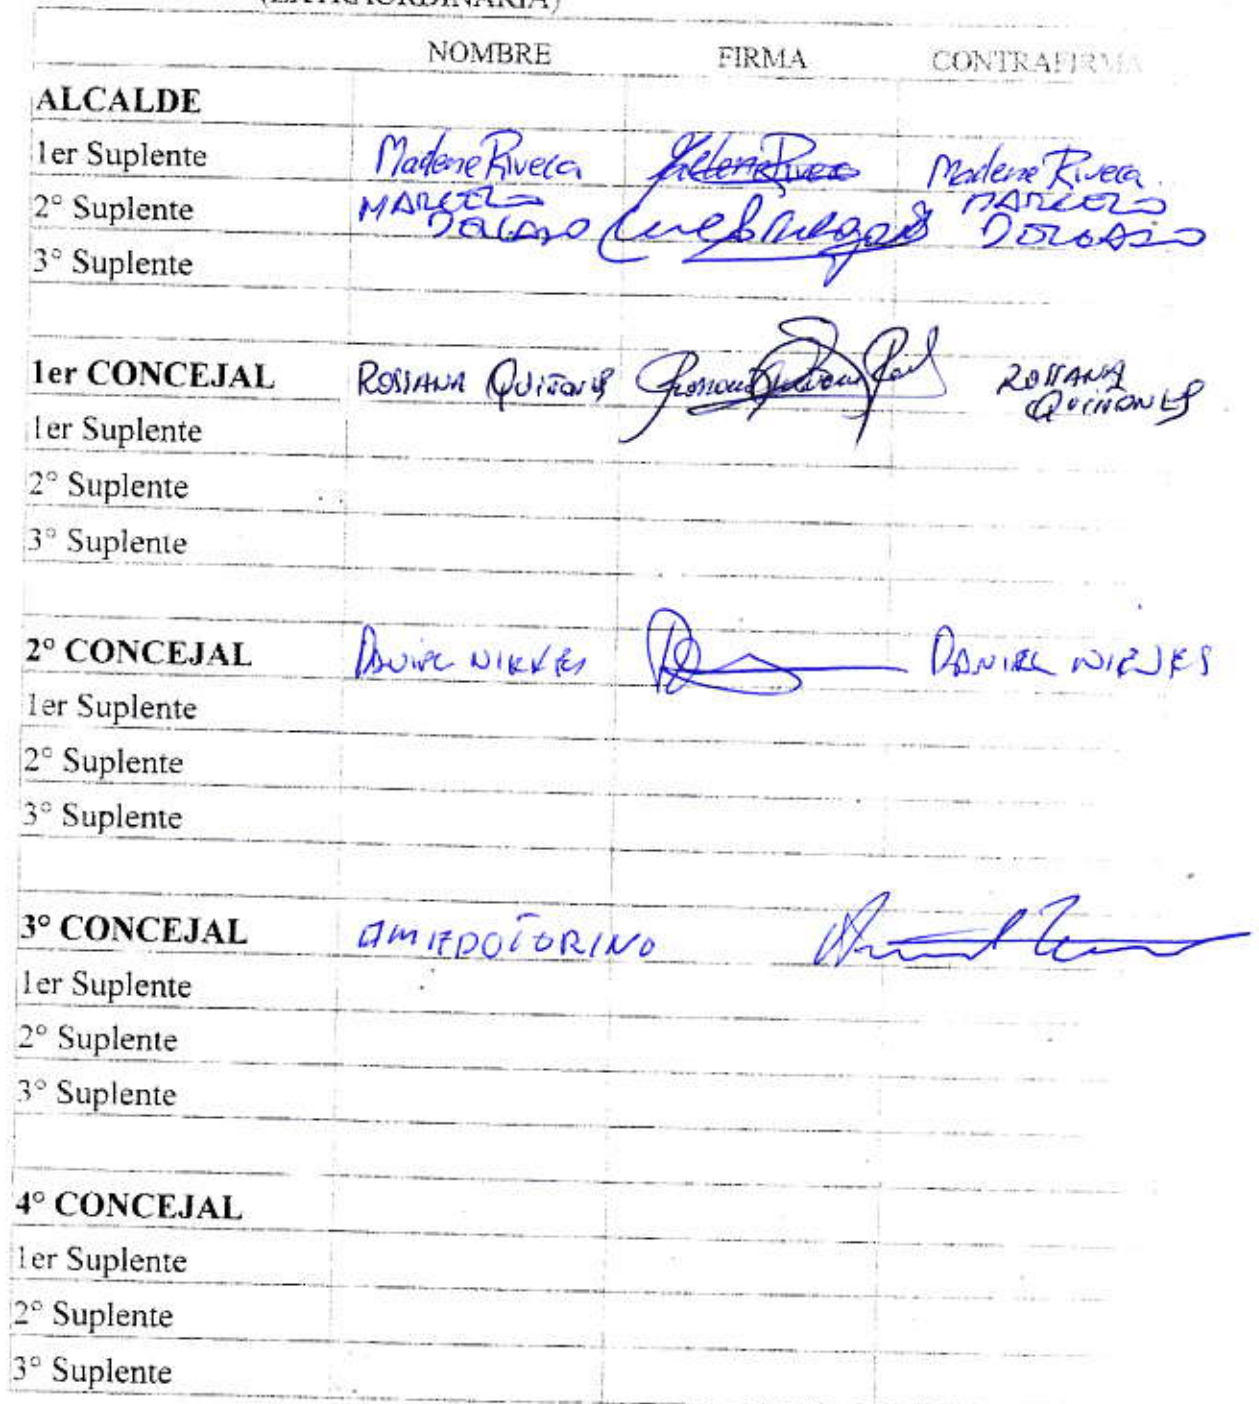 (EXTRAORDINARIA)
NOMBRE FIRMA CONTRAFIRMA
ALCALDE
1er Suplente Marlene Rivera Marlene Rivera
2° Suplente MARCELO DELGADO MARCELO DELGADO
3° Suplente
1er CONCEJAL ROSSANA QUIÑONES ROSSANA QUIÑONES
1er Suplente
2° Suplente
3° Suplente
2° CONCEJAL DANIEL NIEVES DANIEL NIEVES
1er Suplente
2° Suplente
3° Suplente
3° CONCEJAL AMIEDO TORINO
1er Suplente
2° Suplente
3° Suplente
4° CONCEJAL
1er Suplente
2° Suplente
3° Suplente